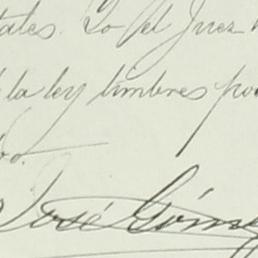 tales. Yo el Juez
la ley timbres po
José Gómez